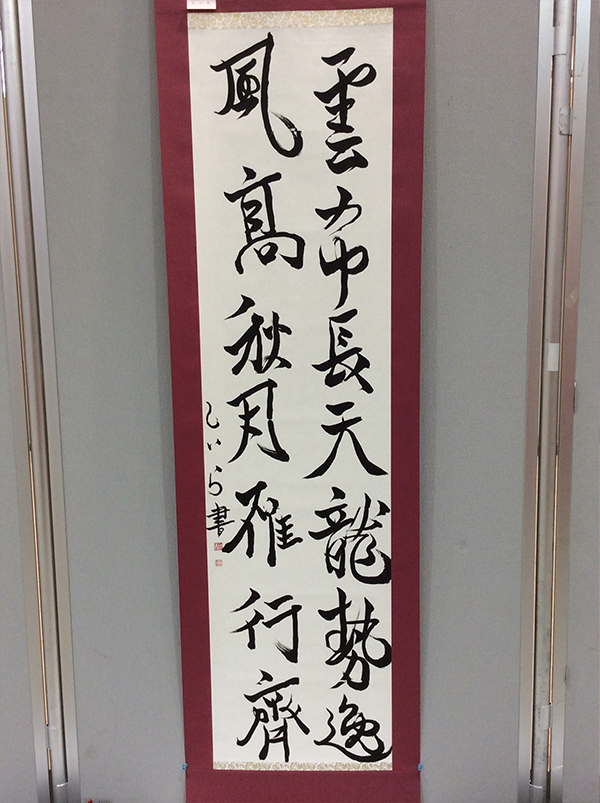 雲布長天龍勢逸
風高秋月雁行齊
書